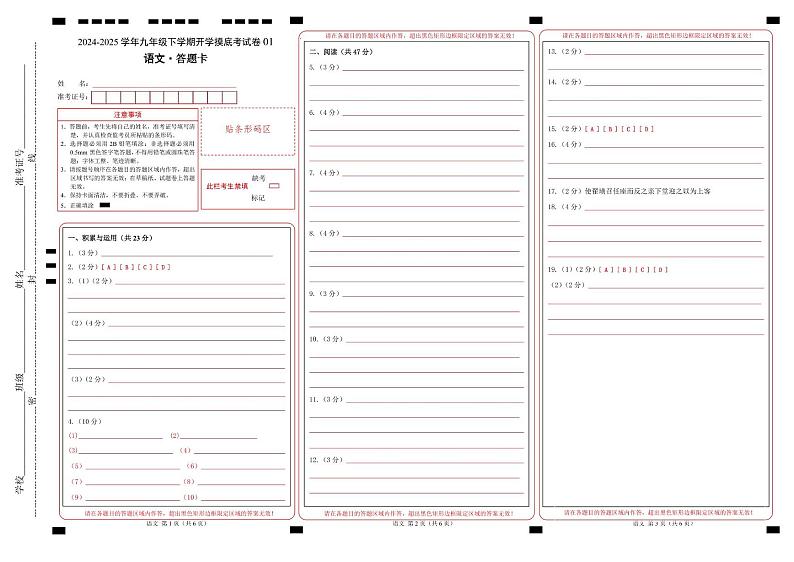 2024-2025 学年九年级下学期开学摸底考试卷 01
语文·答题卡
姓 名:
准考证号:
注意事项
1．答题前，考生先将自己的姓名，准考证号填写清
楚，并认真检查监考员所粘贴的条形码。
2．选择题必须用 2B 铅笔填涂；非选择题必须用
0.5mm 黑色签字笔答题，不得用铅笔或圆珠笔答
题；字体工整、笔迹清晰。
3．请按题号顺序在各题目的答题区域内作答，超出
区域书写的答案无效；在草稿纸、试题卷上答题
无效。
4．保持卡面清洁，不要折叠、不要弄破。
5．正确填涂
贴条形码区
此栏考生禁填
缺考
标记
一、积累与运用（共 23 分）
1.（3 分）
2.（2 分）[A] [B] [C] [D]
3.（1）（2 分）
（2）（4 分）
（3）（2 分）
4.（10 分）
(1) (2)
(3) （4）
（5） （6）
（7） （8）
（9） （10）
请在各题目的答题区域内作答，超出黑色矩形边框限定区域的答案无效！
语文 第 1 页（共 6 页）
请在各题目的答题区域内作答，超出黑色矩形边框限定区域的答案无效！
二、阅读（共 47 分）
5.（3 分）
6.（4 分）
7.（4 分）
8.（4 分）
9.（3 分）
10.（3 分）
11.（3 分）
12.（3 分）
请在各题目的答题区域内作答，超出黑色矩形边框限定区域的答案无效！
语文 第 2 页（共 6 页）
请在各题目的答题区域内作答，超出黑色矩形边框限定区域的答案无效！
13.（2 分）
14.（2 分）
15.（2 分）[A] [B] [C] [D]
16.（4 分）
17.（2 分）使翟璜召任座而反之亲下堂迎之以为上客
18.（4 分）
19.（1）（2 分）[A] [B] [C] [D]
（2）（2 分）
请在各题目的答题区域内作答，超出黑色矩形边框限定区域的答案无效！
语文 第 3 页（共 6 页）
学校 班级 姓名 准考证号
密 封 线